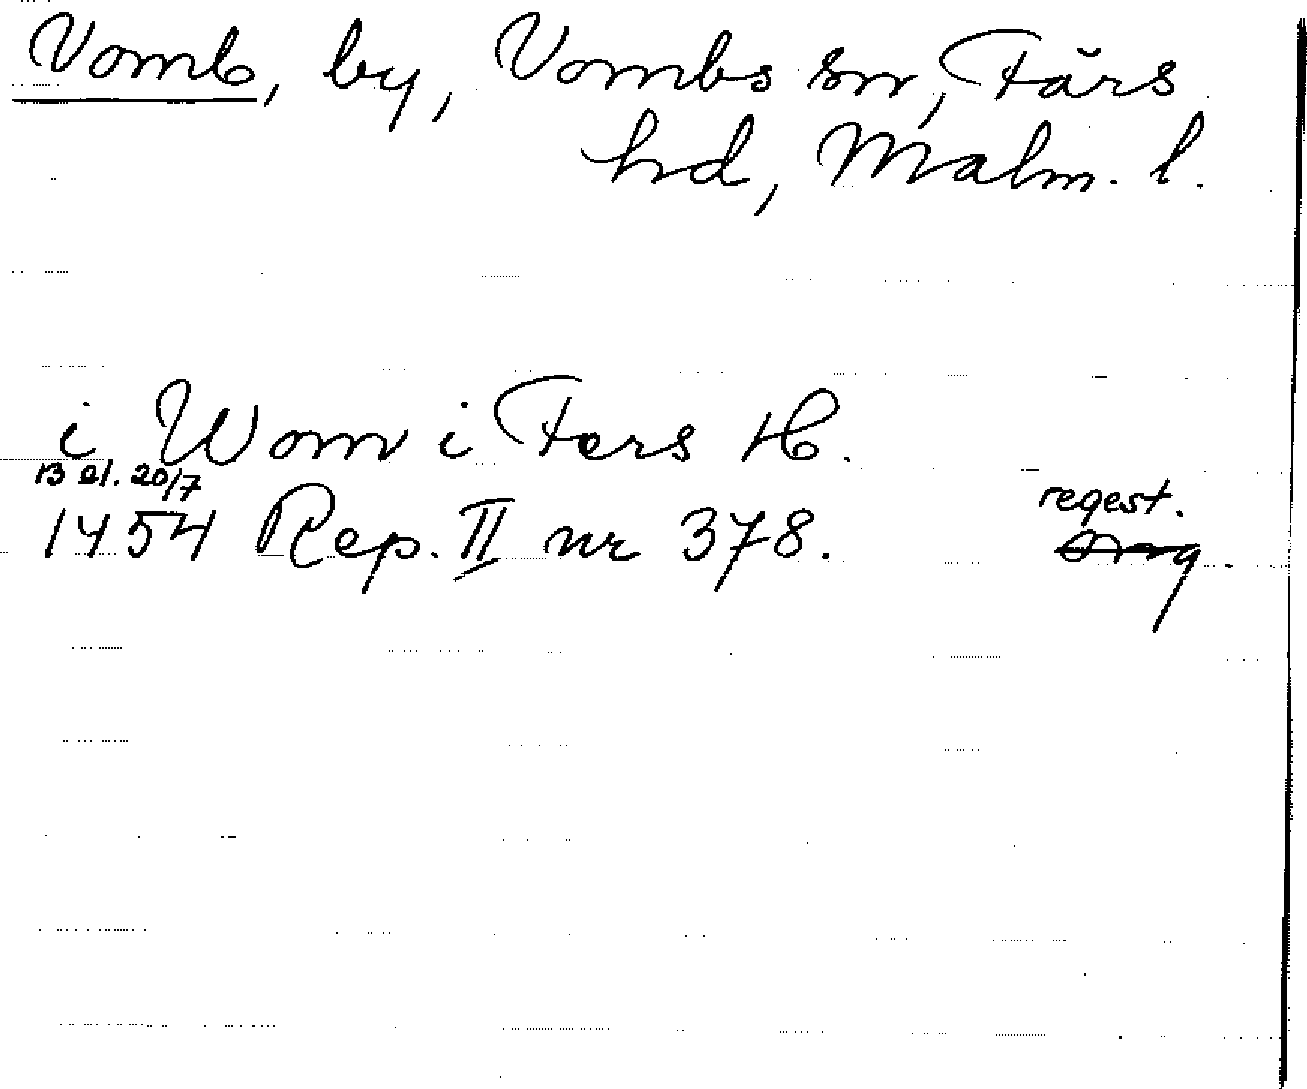 Vomb, by, Vombs sn, Färs
hd, Malm. l.
i Wom i Fers H.
13 el. 20/7
1454 Rep. II nr 378.
regest.